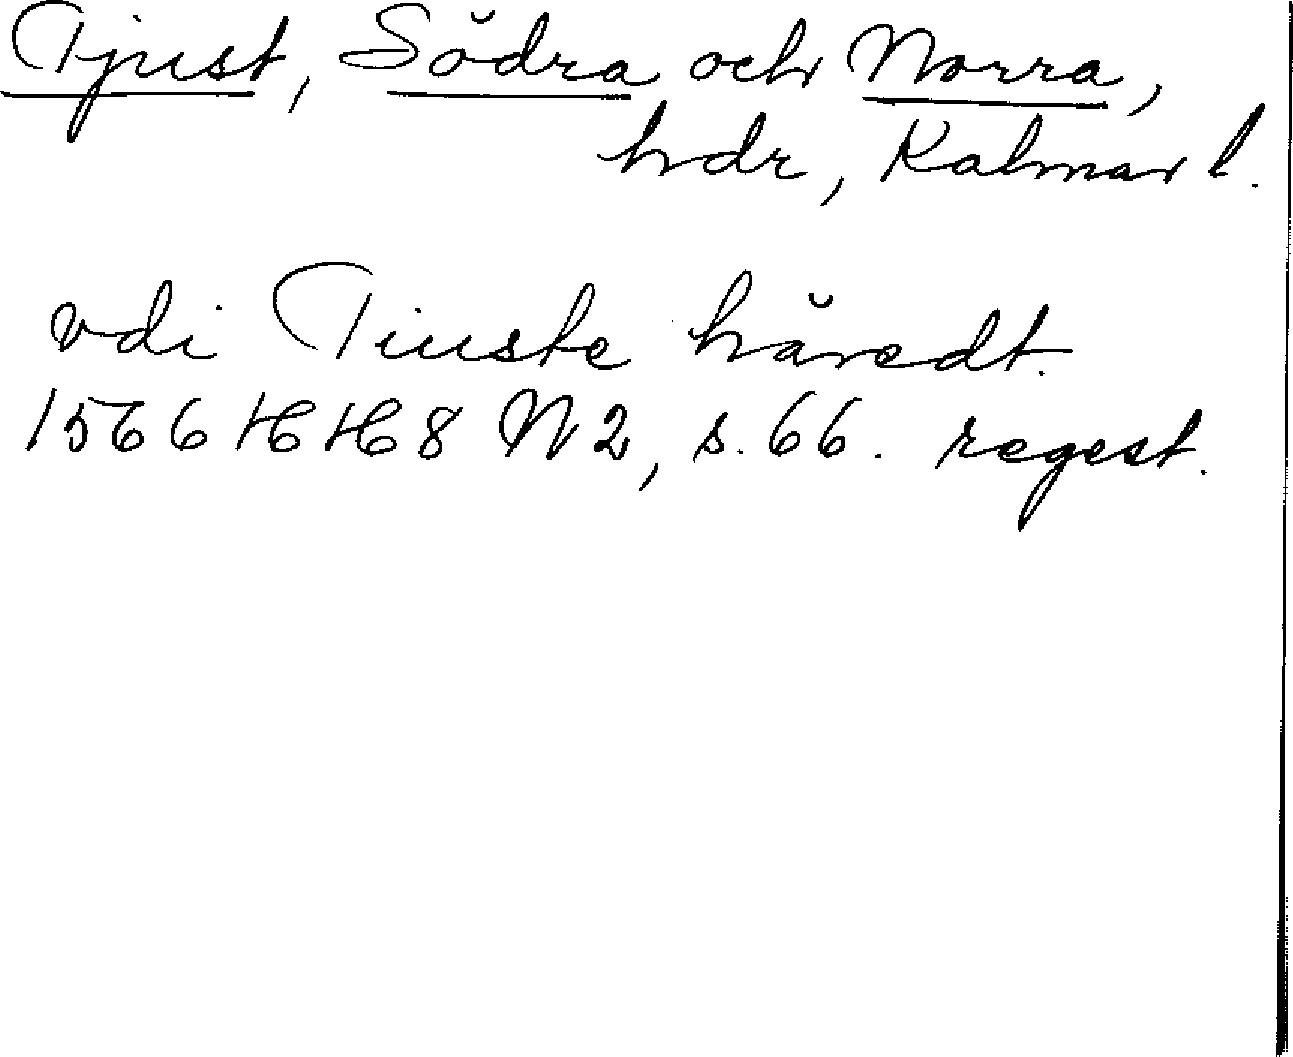 Tjust, Södra och Norra,
hdr, Kalmar l.
vdi Tiuste häredt.
1566 HH 8 N 2, s. 66. regest.